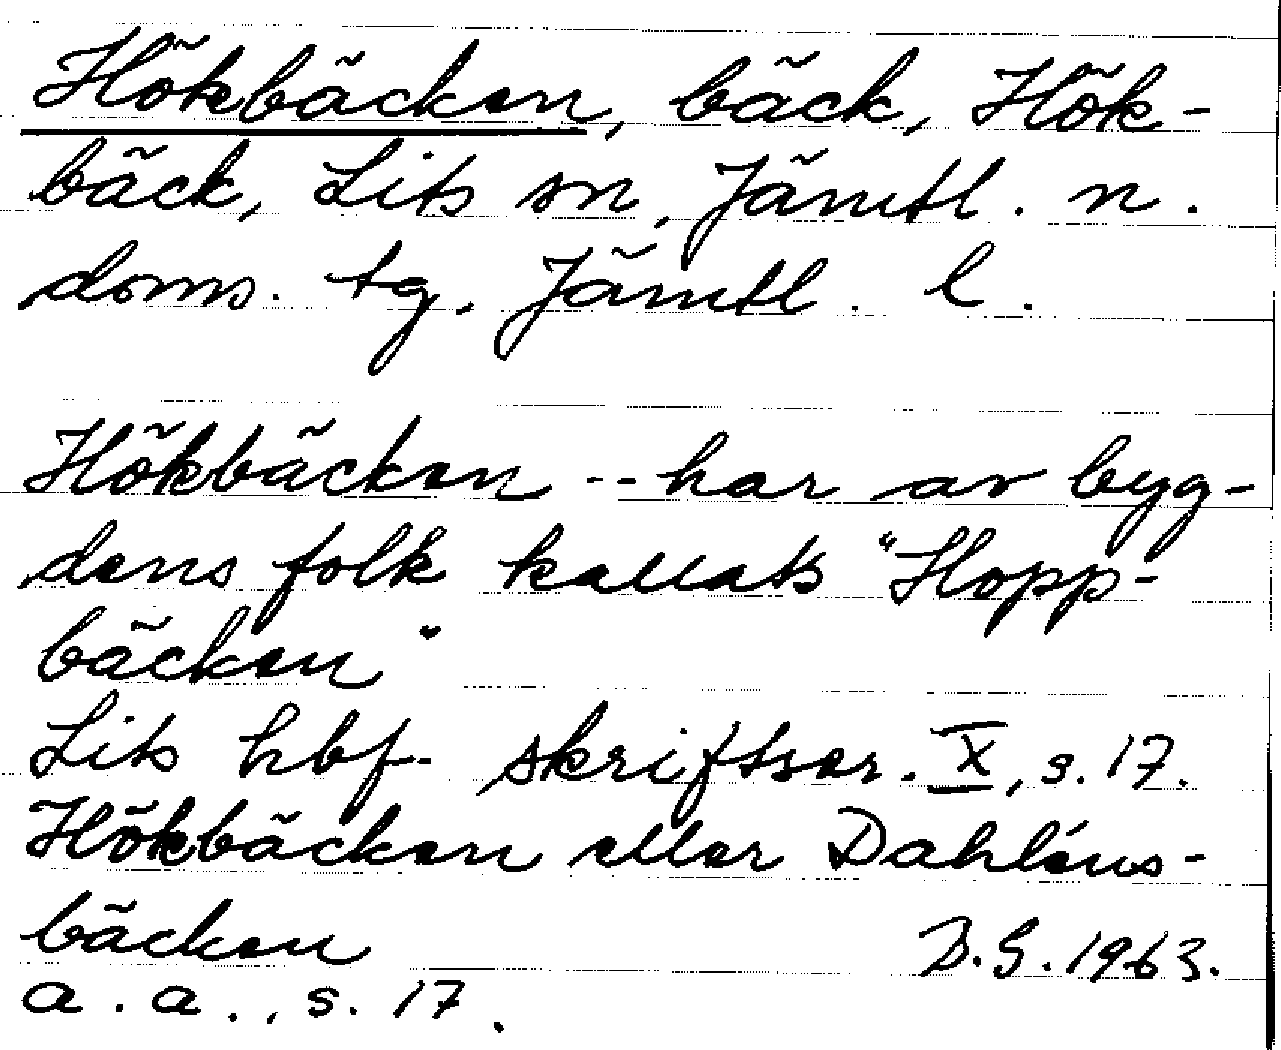 Hökbäcken, bäck, Hök-
bäck, Lits sn, Jämtl. n.
doms. tg, Jämtl. l.
Hökbäcken -- har av byg-
dens folk kallats "Hopp-
bäcken"
Lits hbf. skriftser. X, s. 17.
Hökbäcken eller Dahléns-
bäcken
B.G. 1963.
a. a., s. 17.